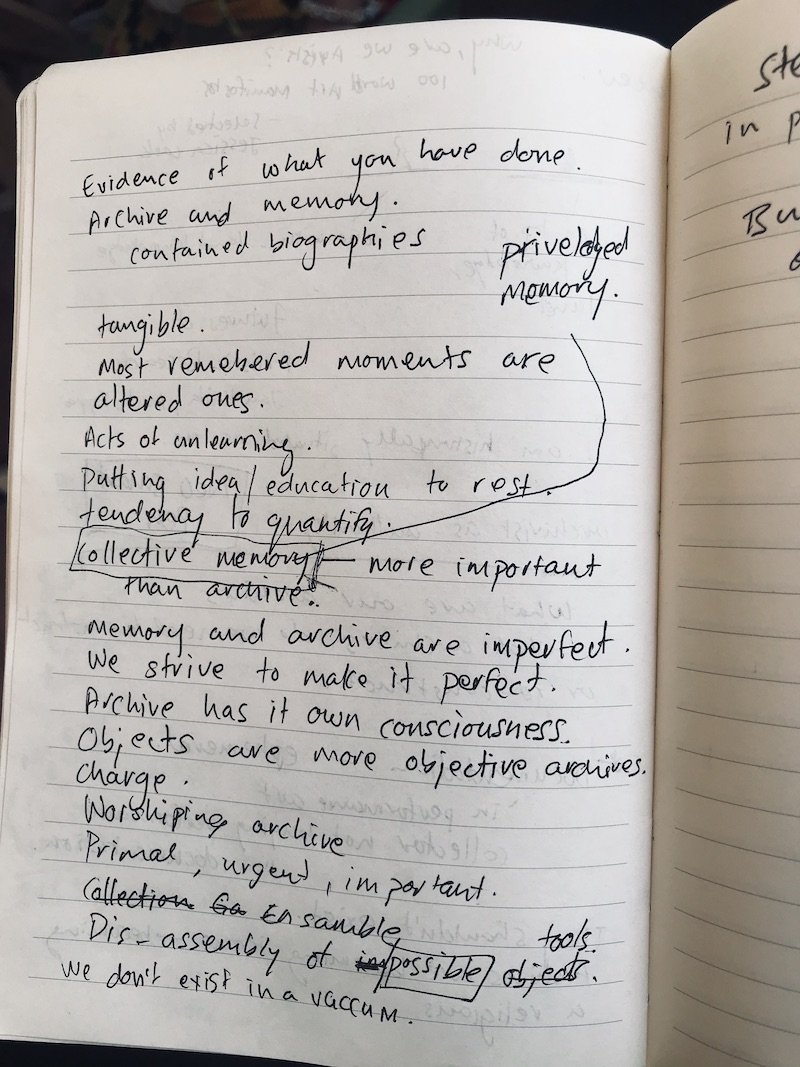 Evidence of what you have done.
Archive and memory.
contained biographies
priveledged
memory.
tangible.
Most remebered moments are
altered ones.
Acts of unlearning.
Putting idea/education to rest.
tendency to quantify.
collective memory — more important
than archive.
memory and archive are imperfect.
We strive to make it perfect.
Archive has it own consciousness.
Objects are more objective archives.
Charge.
Worshiping archive
Primal, urgent, important.
Collection Ga Ensamble
tools.
Dis-assembly of impossible objects.
we don't exist in a vaccum.
in p
Bu